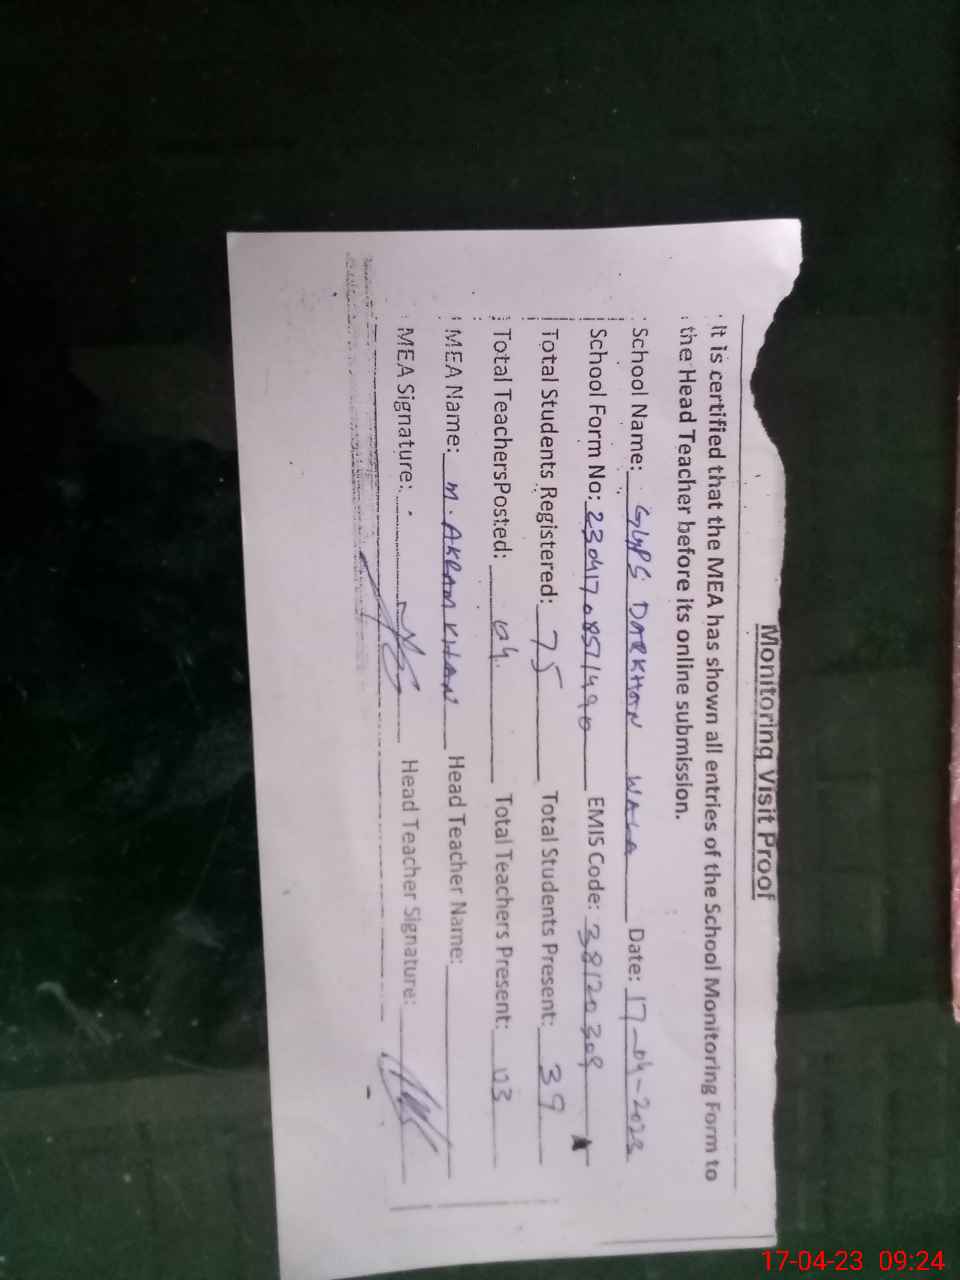 Monitoring Visit Proof
It is certified that the MEA has shown all entries of the School Monitoring Form to
the Head Teacher before its online submission.
School Name: GGPS DARKHAN WALA Date: 17-04-2023
School Form No: 23041708571490 EMIS Code: 38120309
Total Students Registered: 75 Total Students Present: 39
Total TeachersPosted: 04 Total Teachers Present: 03
MEA Name: M. AKRAM KHAN Head Teacher Name:
MEA Signature: Head Teacher Signature:
17-04-23 09:24